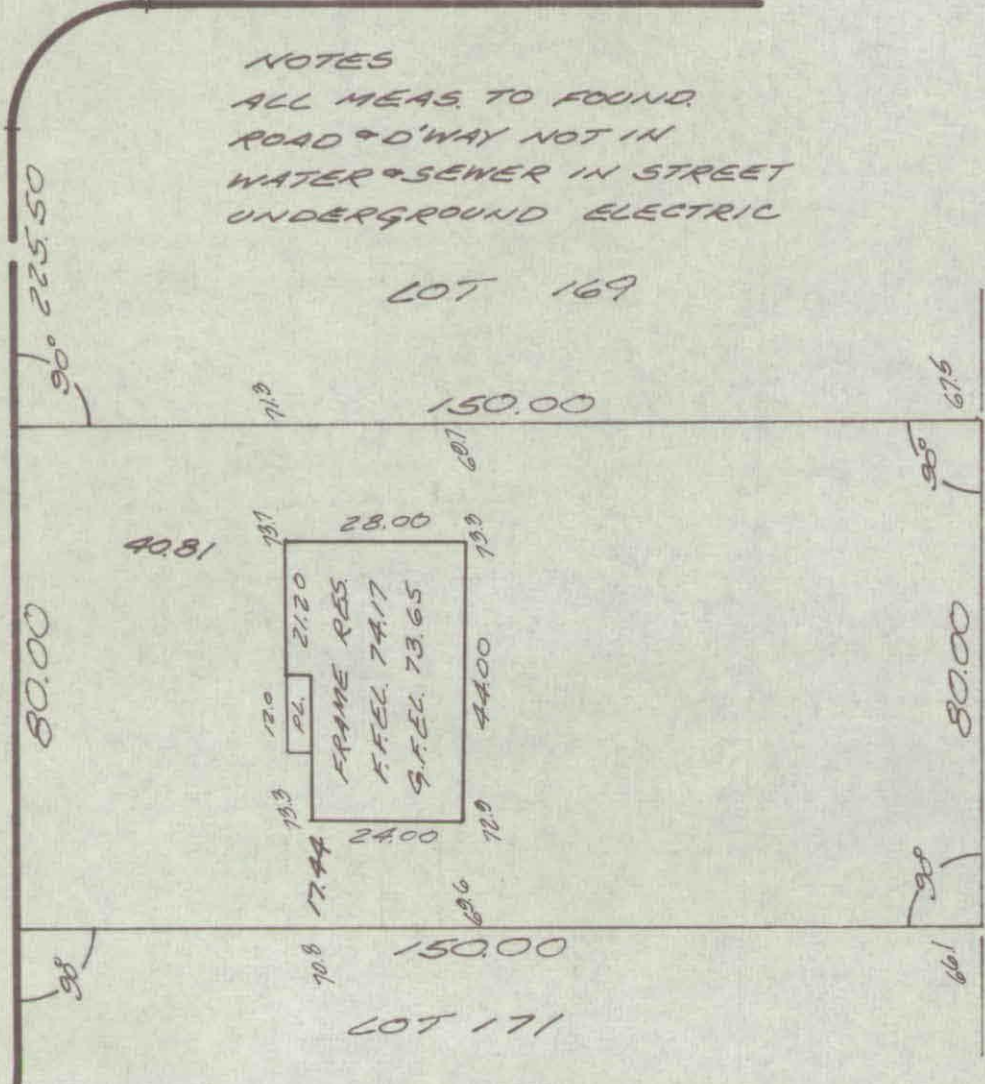 NOTES
ALL MEAS. TO FOUND.
ROAD & D'WAY NOT IN
WATER & SEWER IN STREET
UNDERGROUND ELECTRIC
LOT 169
225.50
90°
71.3
150.00
67.5
69.7
90°
40.81
73.7
28.00
73.3
80.00
21.20
12.0
PL.
FRAME RES.
F.F.EL. 74.17
G.F.EL. 73.65
44.00
80.00
73.3
24.00
72.9
17.44
69.6
90°
90°
70.8
150.00
66.1
LOT 171